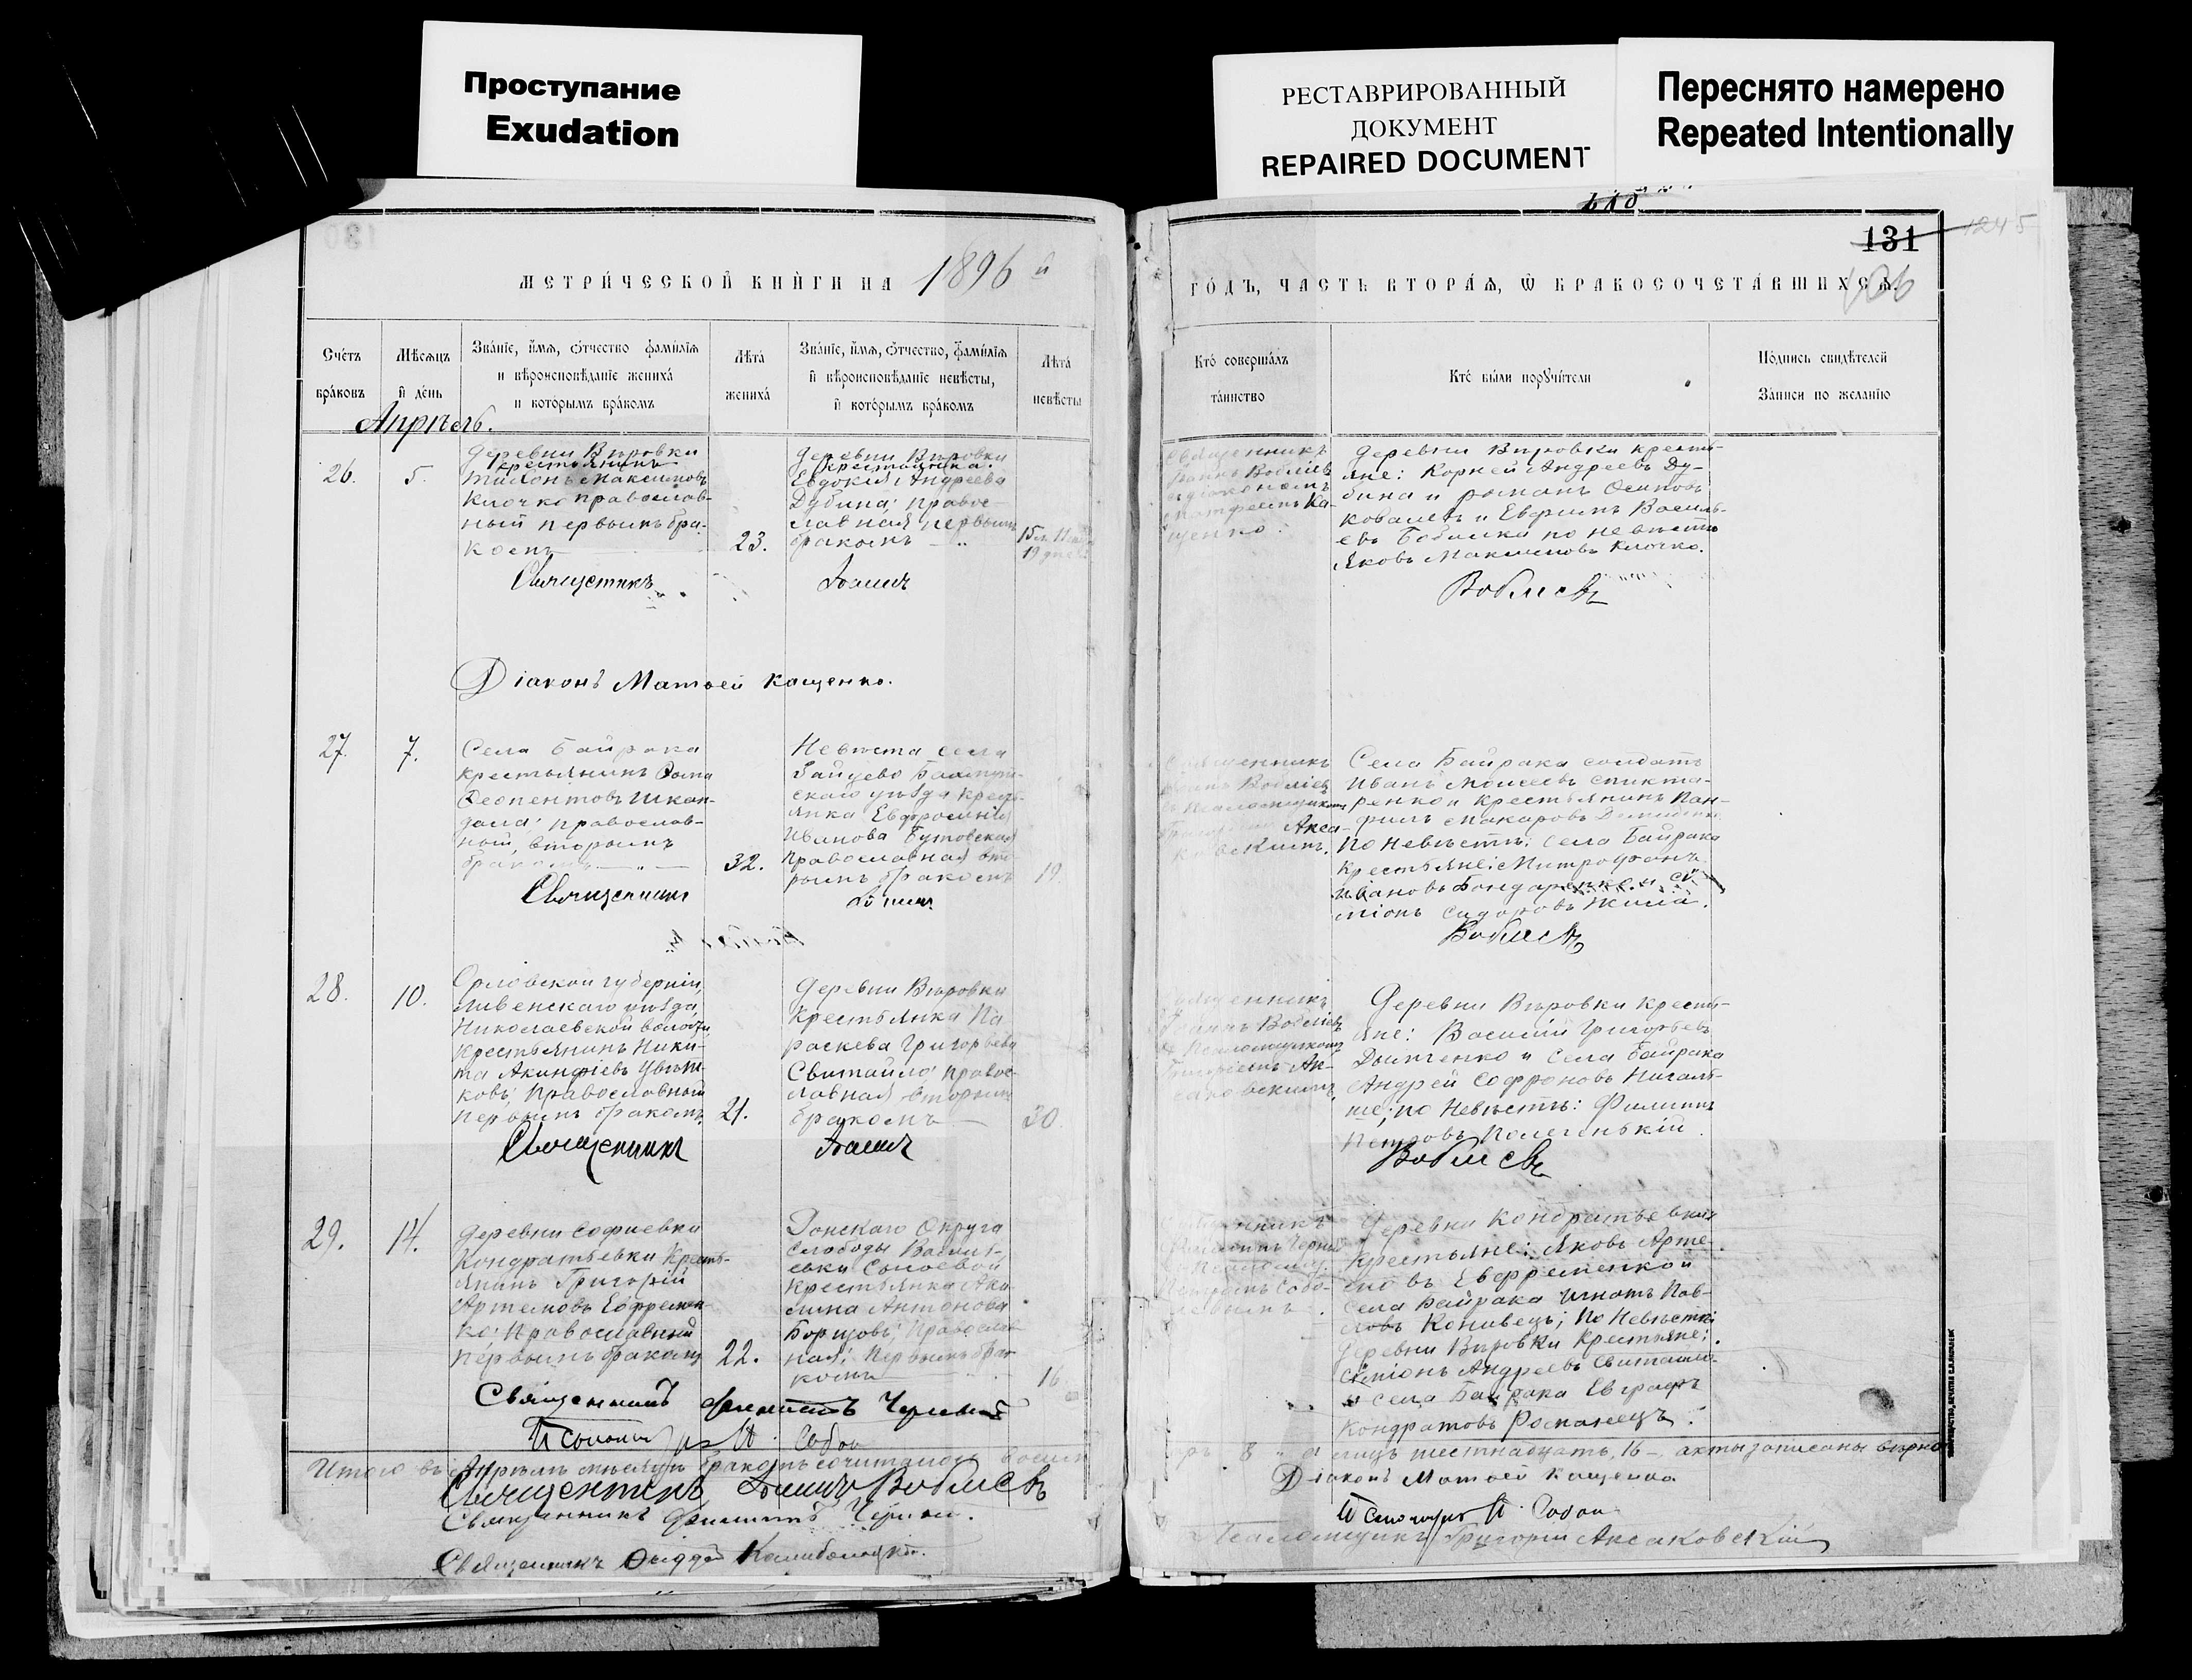 Проступание
Exudation
РЕСТАВРИРОВАННЫЙ
ДОКУМЕНТ
REPAIRED DOCUMENT
Переснято намерено
Repeated Intentionally
131
1245
МЕТРИ́ЧЕСКОЙ КНИ́ГИ НА 1896 й
ГО́ДЪ, ЧАСТЬ ВТОРА́Ѧ, Ѽ БРАКОСОЧЕТА́ВШИХСѦ.
Сче́тъ
бра́ковъ
Мѣ́сѧцъ
и҆ де́нь
Зва́нїе, и҆́мѧ, ѻ҆́тчество фами́лїѧ
и вѣроисповѣ́данїе жениха́
и кото́рымъ бра́комъ
Лѣ́та
жениха́
Зва́нїе, и҆́мѧ, ѻ҆́тчество, фами́лїѧ
и҆ вѣроисповѣ́данїе невѣ́сты,
и҆ кото́рымъ бра́комъ
Лѣ́та
невѣ́сты
Кто́ соверша́лъ
та́инство
Кто́ бы́ли порꙋчи́тели
По́дпись свидѣ́телей
За́писи по жела́нїю
Апрѣль.
26.
5.
Деревни Вѣровки
крестьянинъ
Тихонъ Максимовъ
Клочко православ-
ный первымъ бра-
комъ
23.
Деревни Вѣровки
крестьянка.
Евдокія Андреева
Дубина; правос-
лавная первымъ
бракомъ
15 л. 11 м.
19 дней
Священникъ
Іоаннъ Воблiевъ
съ діакономъ
Матѳеемъ Ка-
щенко.
Деревни Вѣровки кресть-
яне: Корней Андреевъ Ду-
бина и Романъ Осиповъ
Ковалевъ и Ефимъ Василь-
евъ Бобылка по невѣстѣ
Яковъ Максимовъ Клочко.
Священникъ Іоаннъ Воблiевъ
Діаконъ Матѳей Кащенко.
27.
7.
Села Байрака
крестьянинъ Ѳома
Леонтовъ Шкан-
дала; православ-
ный, вторымъ
бракомъ
32.
Невѣста села
Зайцево Бахмут-
скаго уѣзда кресть-
янка Евфросинія
Иванова Бутовская
православная вто-
рымъ бракомъ
19
Священникъ
Іоаннъ Воблiевъ
съ Псаломщикомъ
Акса-
ковскимъ.
Села Байрака солдатъ
Иванъ Моисеевъ Спикта-
ренко и крестьянинъ Пан-
филъ Макаровъ
По Невѣстѣ; села Байрака
крестьяне: Митрофанъ
Ивановъ Бондаренко и Си-
міонъ Сидоровъ Жила.
Священникъ Іоаннъ Воблiевъ
28.
10.
Орловской губерніи,
Ливенскаго уѣзда,
Николаевской волости
крестьянинъ Ники-
та Акинфіевъ Цвѣт-
ковъ; Православный
первымъ бракомъ
21.
Деревни Вѣровки
крестьянка Па-
раскева Григорьева
Свитайло; правос-
лавная вторымъ
бракомъ
30.
Священникъ
Іоаннъ Воблiевъ
съ Псаломщикомъ
Григоріемъ Ак-
саковскимъ
Деревни Вѣровки кресть-
яне: Василій Григорьевъ
Дымченко и Села Байрака
Андрей Софроновъ
по Невѣстѣ: Филиппъ
Петровъ Полегенькій.
Священникъ Іоаннъ Воблiевъ
29.
14.
Деревни Софиевки
Кондратьевки Кресть-
янинъ Григорій
Артемовъ Ефремен-
ко; Православный
первымъ бракомъ
22.
Донскаго Округа
слободы Василь-
евки
крестьянка Аку-
лина Антонова
Борщовъ; Правосла-
ная; Первымъ бра-
комъ
16.
Священникъ
Филиппъ Черный
Деревни Кондратьевки
Крестьяне: Яковъ Арте-
мовъ Ефременко и
села Байрака Игнатъ Пав-
ловъ Коливецъ; По Невѣстѣ
Деревни Вѣровки Крестьяне;
Симіонъ Андреевъ Свитайло
и села Байрака Евграфъ
Кондратовъ Романецъ.
Священникъ Филиппъ Черный
Псаломщикъ П. Собол
Итого въ Апрѣлѣ мѣсяцѣ бракомъ сочиталось восемь
паръ 8 а лицъ шестнадцать, 16 – акты записаны вѣрно
Священникъ Іоаннъ Воблiевъ
Діаконъ Матѳей Кащенко
Священникъ Филиппъ Черный.
Псаломщикъ П. Собол
Священникъ
Псаломщикъ Григорій Аксаковскій